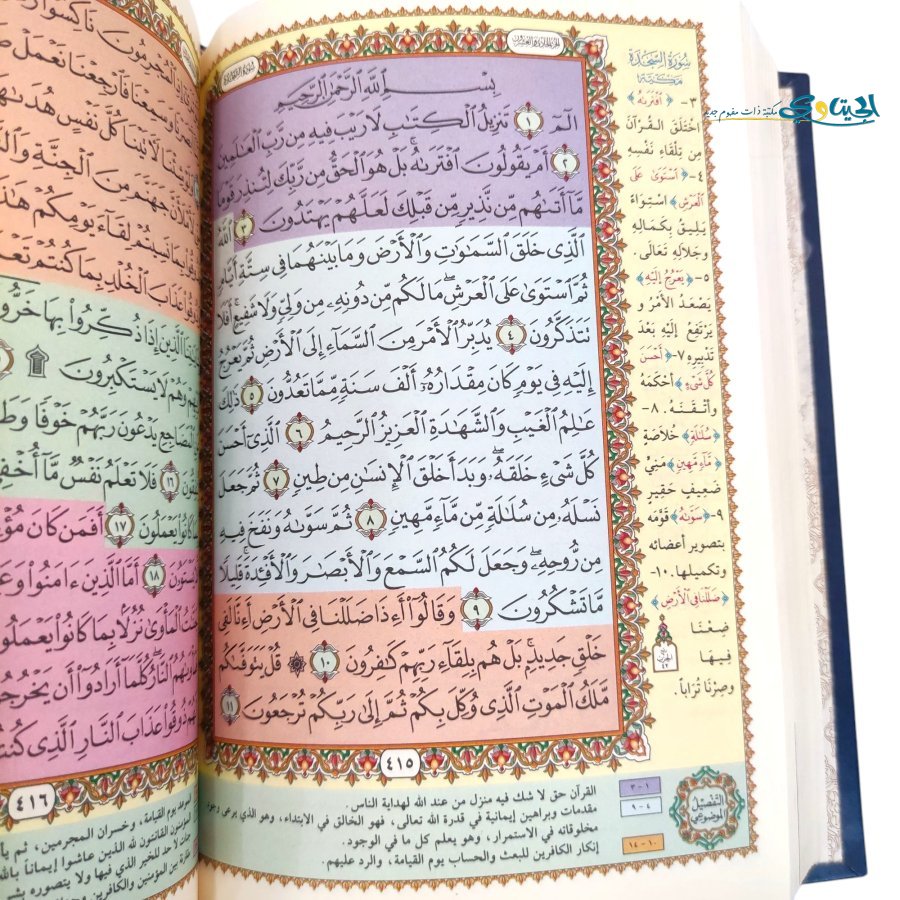 الجزء الحادي والعشرون
بِسْمِ ٱللَّهِ ٱلرَّحْمَٰنِ ٱلرَّحِيمِ
الٓمٓ ١ تَنزِيلُ ٱلْكِتَٰبِ لَا رَيْبَ فِيهِ مِن رَّبِّ ٱلْعَٰلَمِينَ
٢ أَمْ يَقُولُونَ ٱفْتَرَىٰهُ ۚ بَلْ هُوَ ٱلْحَقُّ مِن رَّبِّكَ لِتُنذِرَ قَوْمًا
مَّآ أَتَىٰهُم مِّن نَّذِيرٍ مِّن قَبْلِكَ لَعَلَّهُمْ يَهْتَدُونَ ٣ ٱللَّهُ
ٱلَّذِى خَلَقَ ٱلسَّمَٰوَٰتِ وَٱلْأَرْضَ وَمَا بَيْنَهُمَا فِى سِتَّةِ أَيَّامٍ
ثُمَّ ٱسْتَوَىٰ عَلَى ٱلْعَرْشِ ۖ مَا لَكُم مِّن دُونِهِۦ مِن وَلِىٍّ وَلَا شَفِيعٍ ۚ أَفَلَا
تَتَذَكَّرُونَ ٤ يُدَبِّرُ ٱلْأَمْرَ مِنَ ٱلسَّمَآءِ إِلَى ٱلْأَرْضِ ثُمَّ يَعْرُجُ
إِلَيْهِ فِى يَوْمٍ كَانَ مِقْدَارُهُۥٓ أَلْفَ سَنَةٍ مِّمَّا تَعُدُّونَ ٥ ذَٰلِكَ
عَٰلِمُ ٱلْغَيْبِ وَٱلشَّهَٰدَةِ ٱلْعَزِيزُ ٱلرَّحِيمُ ٦ ٱلَّذِىٓ أَحْسَنَ
كُلَّ شَىْءٍ خَلَقَهُۥ ۖ وَبَدَأَ خَلْقَ ٱلْإِنسَٰنِ مِن طِينٍ ٧ ثُمَّ جَعَلَ
نَسْلَهُۥ مِن سُلَٰلَةٍ مِّن مَّآءٍ مَّهِينٍ ٨ ثُمَّ سَوَّىٰهُ وَنَفَخَ فِيهِ
مِن رُّوحِهِۦ ۖ وَجَعَلَ لَكُمُ ٱلسَّمْعَ وَٱلْأَبْصَٰرَ وَٱلْأَفْـِٔدَةَ ۚ قَلِيلًا
مَّا تَشْكُرُونَ ٩ وَقَالُوٓا۟ أَءِذَا ضَلَلْنَا فِى ٱلْأَرْضِ أَءِنَّا لَفِى
خَلْقٍ جَدِيدٍۭ ۚ بَلْ هُم بِلِقَآءِ رَبِّهِمْ كَٰفِرُونَ ١٠ ۞ قُلْ يَتَوَفَّىٰكُم
مَّلَكُ ٱلْمَوْتِ ٱلَّذِى وُكِّلَ بِكُمْ ثُمَّ إِلَىٰ رَبِّكُمْ تُرْجَعُونَ ١١
٤١٥
سُورَةُ السَّجْدَةِ
مكيّة
٣- ﴿افْتَرَىٰهُ﴾
اخْتَلَقَ القُرآنَ
مِن تِلْقَاءِ نَفْسِهِ
٤- ﴿اسْتَوَىٰ عَلَى
الْعَرْشِ﴾ اسْتِوَاءً
يَلِيقُ بِكَمَالِهِ
وجَلالِهِ تَعَالَى.
٥- ﴿يَعْرُجُ إِلَيْهِ﴾
يَصْعَدُ الأمْرُ و
يَرْتَفِعُ إلَيْهِ بَعْدَ
تَدْبِيرِه ٧- ﴿أَحْسَنَ
كُلَّ شَيْءٍ﴾ أحْكَمَهُ
وأتْقَنَهُ. ٨-
﴿سُلَٰلَةٍ﴾ خُلاصَةٍ
﴿مَّآءٍ مَّهِينٍ﴾ مَنِيٍّ
ضعيفٍ حَقِيرٍ
٩- ﴿سَوَّىٰهُ﴾ قَوَّمَهُ
بتصويرِ أعضائه
وتكميلها. ١٠-
﴿ضَلَلْنَا فِي الْأَرْضِ﴾
ضِعْنَا
فِيهَا
وصِرْنَا تُرَاباً.
الحزب ٤٢
التفصيل الموضوعي
١-٣ القرآن حق لا شك فيه منزل من عند الله لهداية الناس.
٤-٩ مقدمات وبراهين إيمانية في قدرة الله تعالى، فهو الخالق في الابتداء، وهو الذي يرعى وجود
مخلوقاته في الاستمرار، وهو يعلم كل ما في الوجود.
١٠-١٤ إنكار الكافرين للبعث والحساب يوم القيامة، والرد عليهم.
الجيتاوي
مكتبة ذات مفهوم جديد
ٱلْمُجْرِمُونَ نَاكِسُوا۟
وَسَمِعْنَا فَٱرْجِعْنَا نَعْمَلْ
شِئْنَا لَءَاتَيْنَا كُلَّ نَفْسٍ هُدَىٰهَا
جَهَنَّمَ مِنَ ٱلْجِنَّةِ
نَسِيتُمْ لِقَآءَ يَوْمِكُمْ هَٰذَآ
عَذَابَ ٱلْخُلْدِ بِمَا كُنتُمْ
ٱلَّذِينَ إِذَا ذُكِّرُوا۟ بِهَا خَرُّوا۟
وَهُمْ لَا يَسْتَكْبِرُونَ
ٱلْمَضَاجِعِ يَدْعُونَ رَبَّهُمْ خَوْفًا
١٦ فَلَا تَعْلَمُ نَفْسٌ مَّآ أُخْفِىَ
كَانُوا۟ يَعْمَلُونَ ١٧ أَفَمَن كَانَ
١٨ أَمَّا ٱلَّذِينَ ءَامَنُوا۟
ٱلْمَأْوَىٰ نُزُلًۢا بِمَا كَانُوا۟ يَعْمَلُونَ
ٱلنَّارُ ۖ كُلَّمَآ أَرَادُوٓا۟ أَن يَخْرُجُوا۟
ذُوقُوا۟ عَذَابَ ٱلنَّارِ ٱلَّذِى
٤١٦
يوم القيامة، وخسران المجرمين،
المؤمنون القانتون لله الذين عاشوا إيماناً